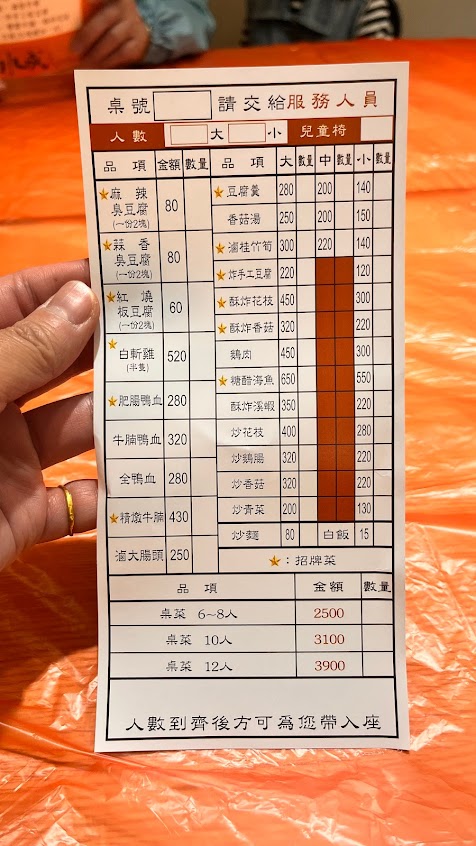 桌號 請交給服務人員
人數 大 小 兒童椅
品項 金額 數量 品項 大 數量 中 數量 小 數量
★麻辣臭豆腐 (一份2塊) 80
★蒜香臭豆腐 (一份2塊) 80
★紅燒板豆腐 (一份2塊) 60
★白斬雞 (半隻) 520
★肥腸鴨血 280
牛腩鴨血 320
全鴨血 280
★精燉牛腩 430
滷大腸頭 250
★豆腐羹 280 200 140
香菇湯 250 200 150
★滷桂竹筍 300 220 140
★炸手工豆腐 220 120
★酥炸花枝 450 300
★酥炸香菇 320 220
鵝肉 450 300
★糖醋海魚 650 550
酥炸溪蝦 350 220
炒花枝 400 280
炒鵝腸 320 220
炒香菇 320 220
炒青菜 200 130
炒麵 80 白飯 15
★：招牌菜
品項 金額 數量
桌菜 6~8人 2500
桌菜 10人 3100
桌菜 12人 3900
人數到齊後方可為您帶入座